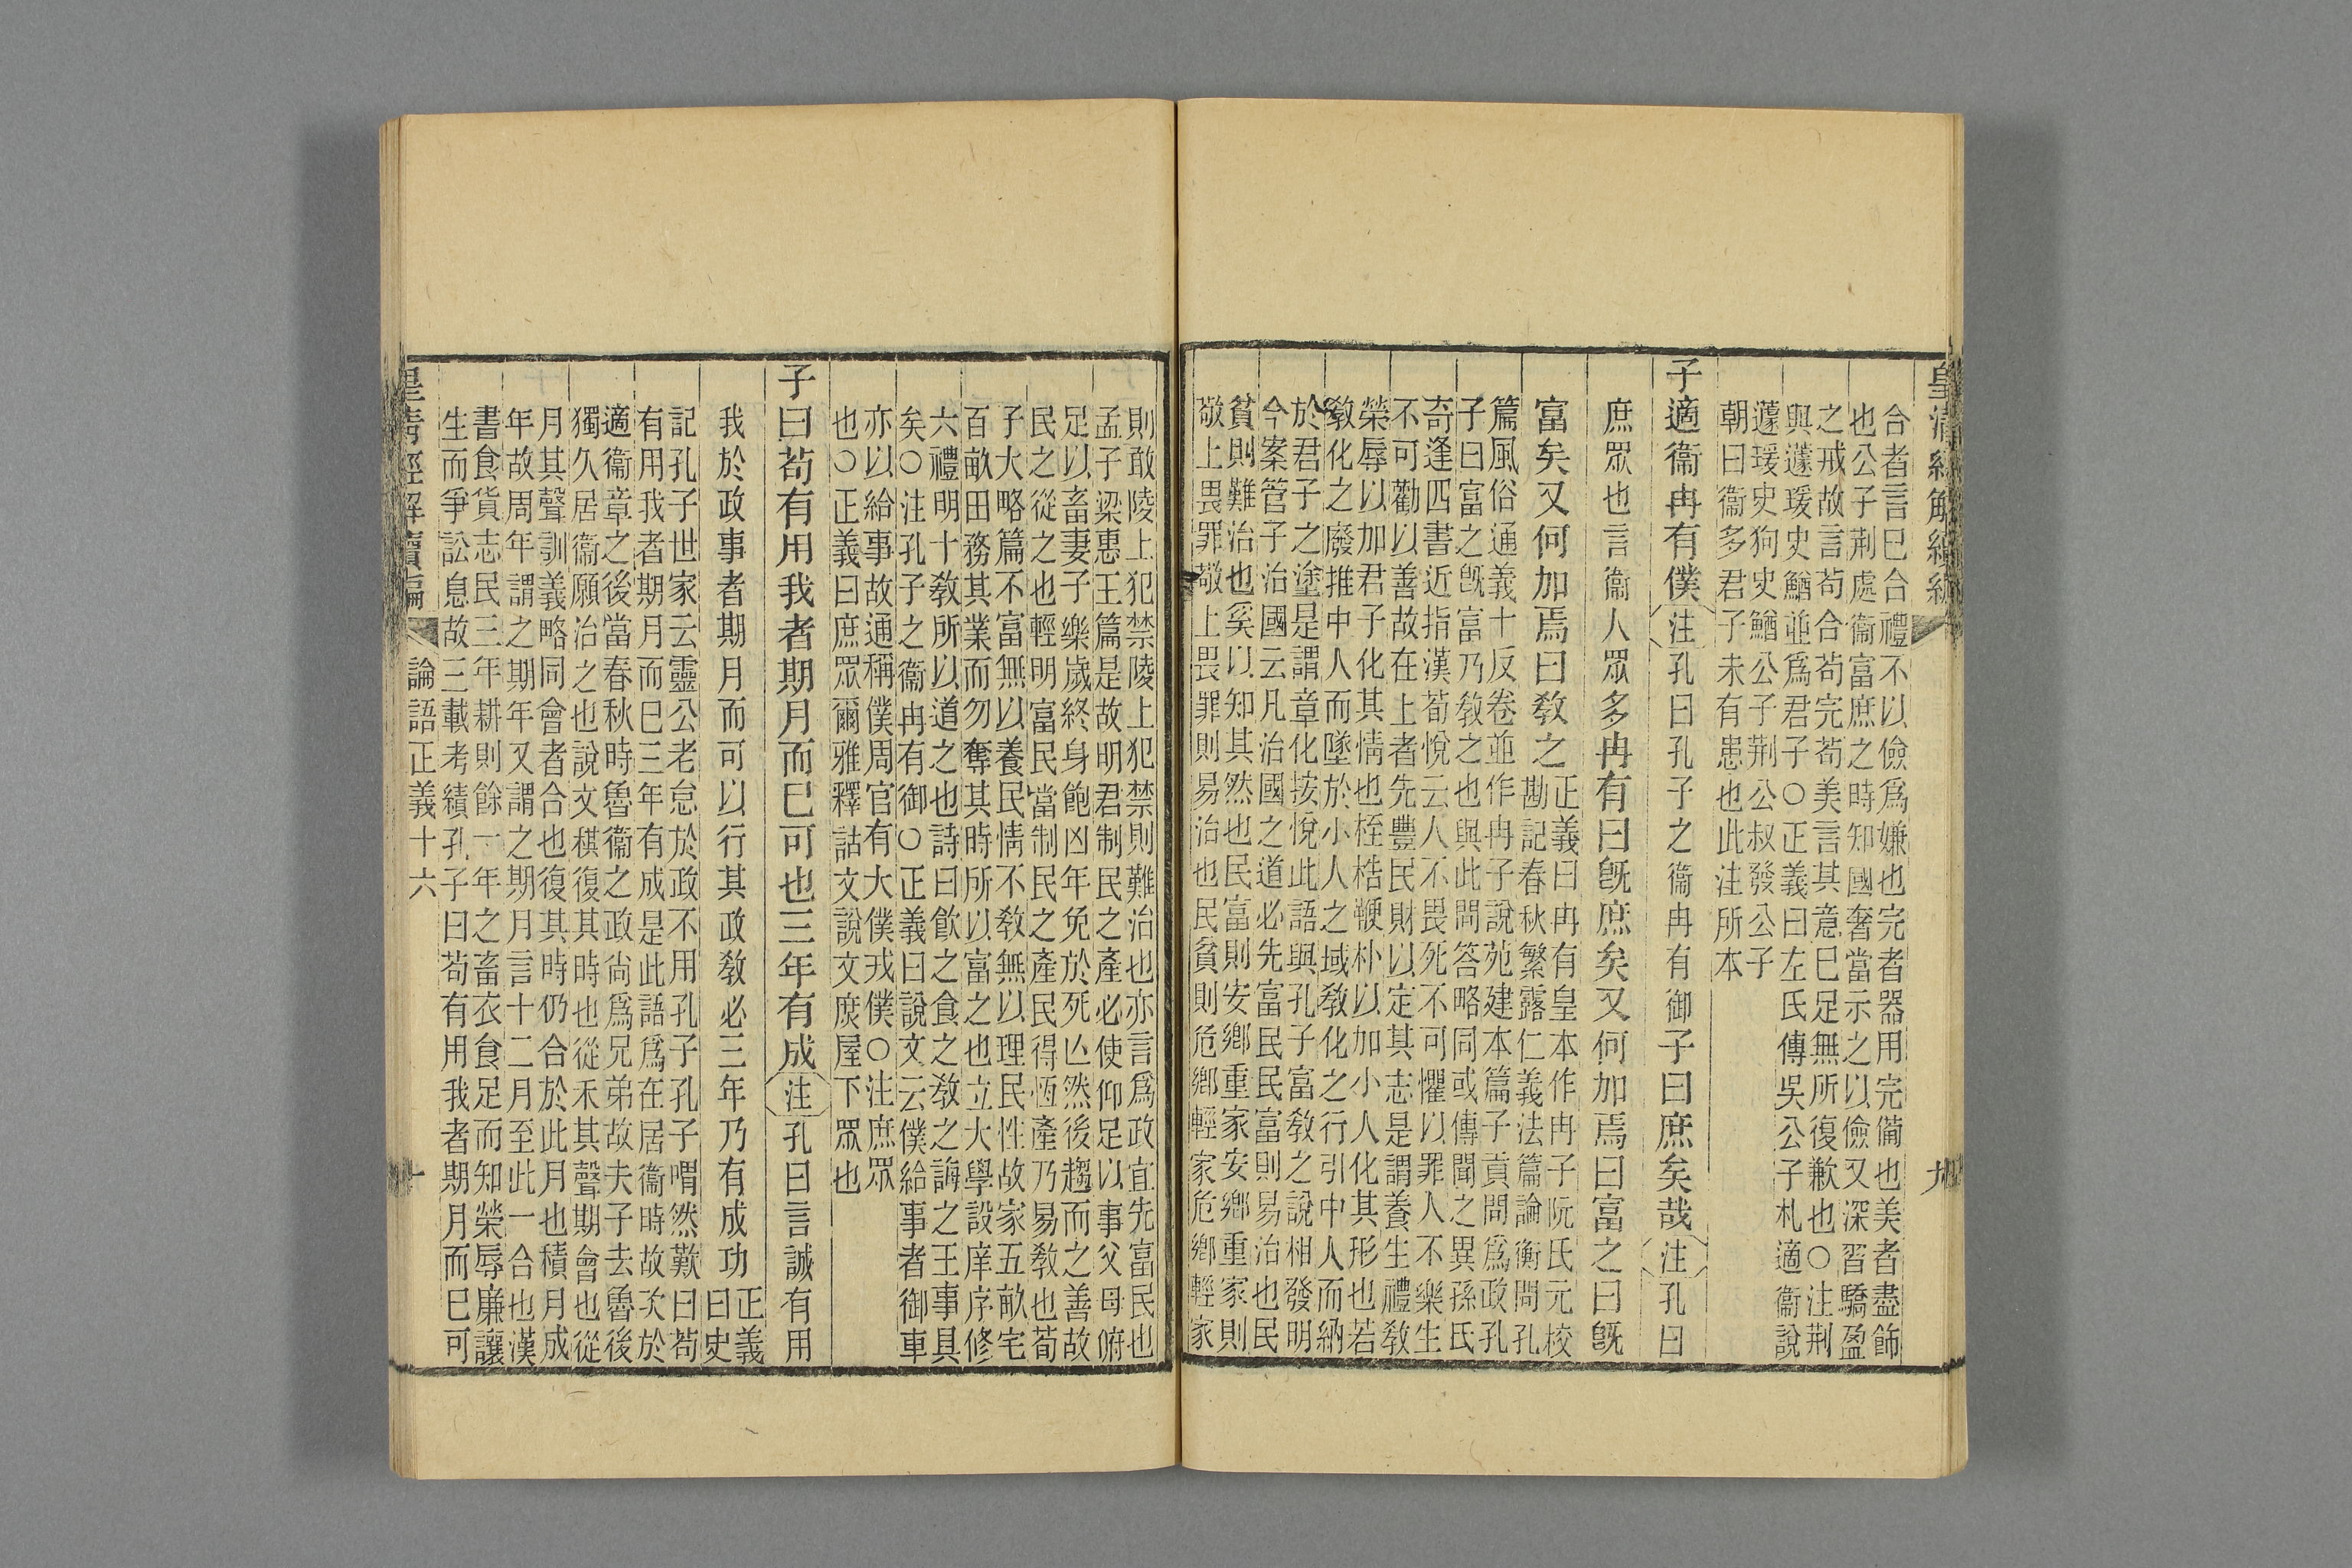 皇清經解續編
九
合者言巳合禮不以儉爲嫌也完者器用完備也美者盡飾
也公子荆處衞富庶之時知國奢當示之以儉又深習驕盈
之戒故言苟合苟完苟美言其意巳足無所復歉也○注荆
與蘧瑗史鰌並爲君子○正義曰左氏傳吳公子札適衞說
蘧瑗史狗史鰌公子荆公叔發公子
朝曰衞多君子未有患也此注所本
子適衞冉有僕注孔曰孔子之衞冉有御子曰庶矣哉注孔曰
庶眾也言衞人眾多冉有曰旣庶矣又何加焉曰富之曰旣
富矣又何加焉曰敎之
正義曰冉有皇本作冉子阮氏元校
勘記春秋繁露仁義法篇論衡問孔
篇風俗通義十反卷並作冉子說苑建本篇子貢問爲政孔
子曰富之旣富乃敎之也與此問答略同或傳聞之異孫氏
奇逢四書近指漢荀悅云人不畏死不可懼以罪人不樂生
不可勸以善故在上者先豐民財以定其志是謂養生禮敎
榮辱以加君子化其情也桎梏鞭朴以加小人化其形也若
敎化之廢推中人而墜於小人之域敎化之行引中人而納
於君子之塗是謂章化按悅此語與孔子富敎之說相發明
今案管子治國云凡治國之道必先富民民富則易治也民
貧則難治也奚以知其然也民富則安鄉重家安鄉重家則
敬上畏罪敬上畏罪則易治也民貧則危鄉輕家危鄉輕家
則敢陵上犯禁陵上犯禁則難治也亦言爲政宜先富民也
孟子梁惠王篇是故明君制民之產必使仰足以事父母俯
足以畜妻子樂歲終身飽凶年免於死亾然後趨而之善故
民之從之也輕明富民當制民之產民得恆產乃易敎也荀
子大略篇不富無以養民情不敎無以理民性故家五畝宅
百畝田務其業而勿奪其時所以富之也立大學設庠序修
六禮明十敎所以道之也詩曰飮之食之敎之誨之王事具
矣○注孔子之衞冉有御○正義曰說文云僕給事者御車
亦以給事故通稱僕周官有大僕戎僕○注庶眾
也○正義曰庶眾爾雅釋詁文說文庶屋下眾也
子曰苟有用我者期月而巳可也三年有成注孔曰言誠有用
我於政事者期月而可以行其政敎必三年乃有成功
正義
曰史
記孔子世家云靈公老怠於政不用孔子孔子喟然歎曰苟
有用我者期月而巳三年有成是此語爲在居衞時故次於
適衞章之後當春秋時魯衞之政尙爲兄弟故夫子去魯後
獨久居衞願治之也說文稘復其時也從禾其聲期會也從
月其聲訓義略同會者合也復其時仍合於此月也積月成
年故周年謂之期年又謂之期月言十二月至此一合也漢
書食貨志民三年耕則餘一年之畜衣食足而知榮辱廉讓
生而爭訟息故三載考績孔子曰苟有用我者期月而巳可
皇清經解續編
論語正義十六
十